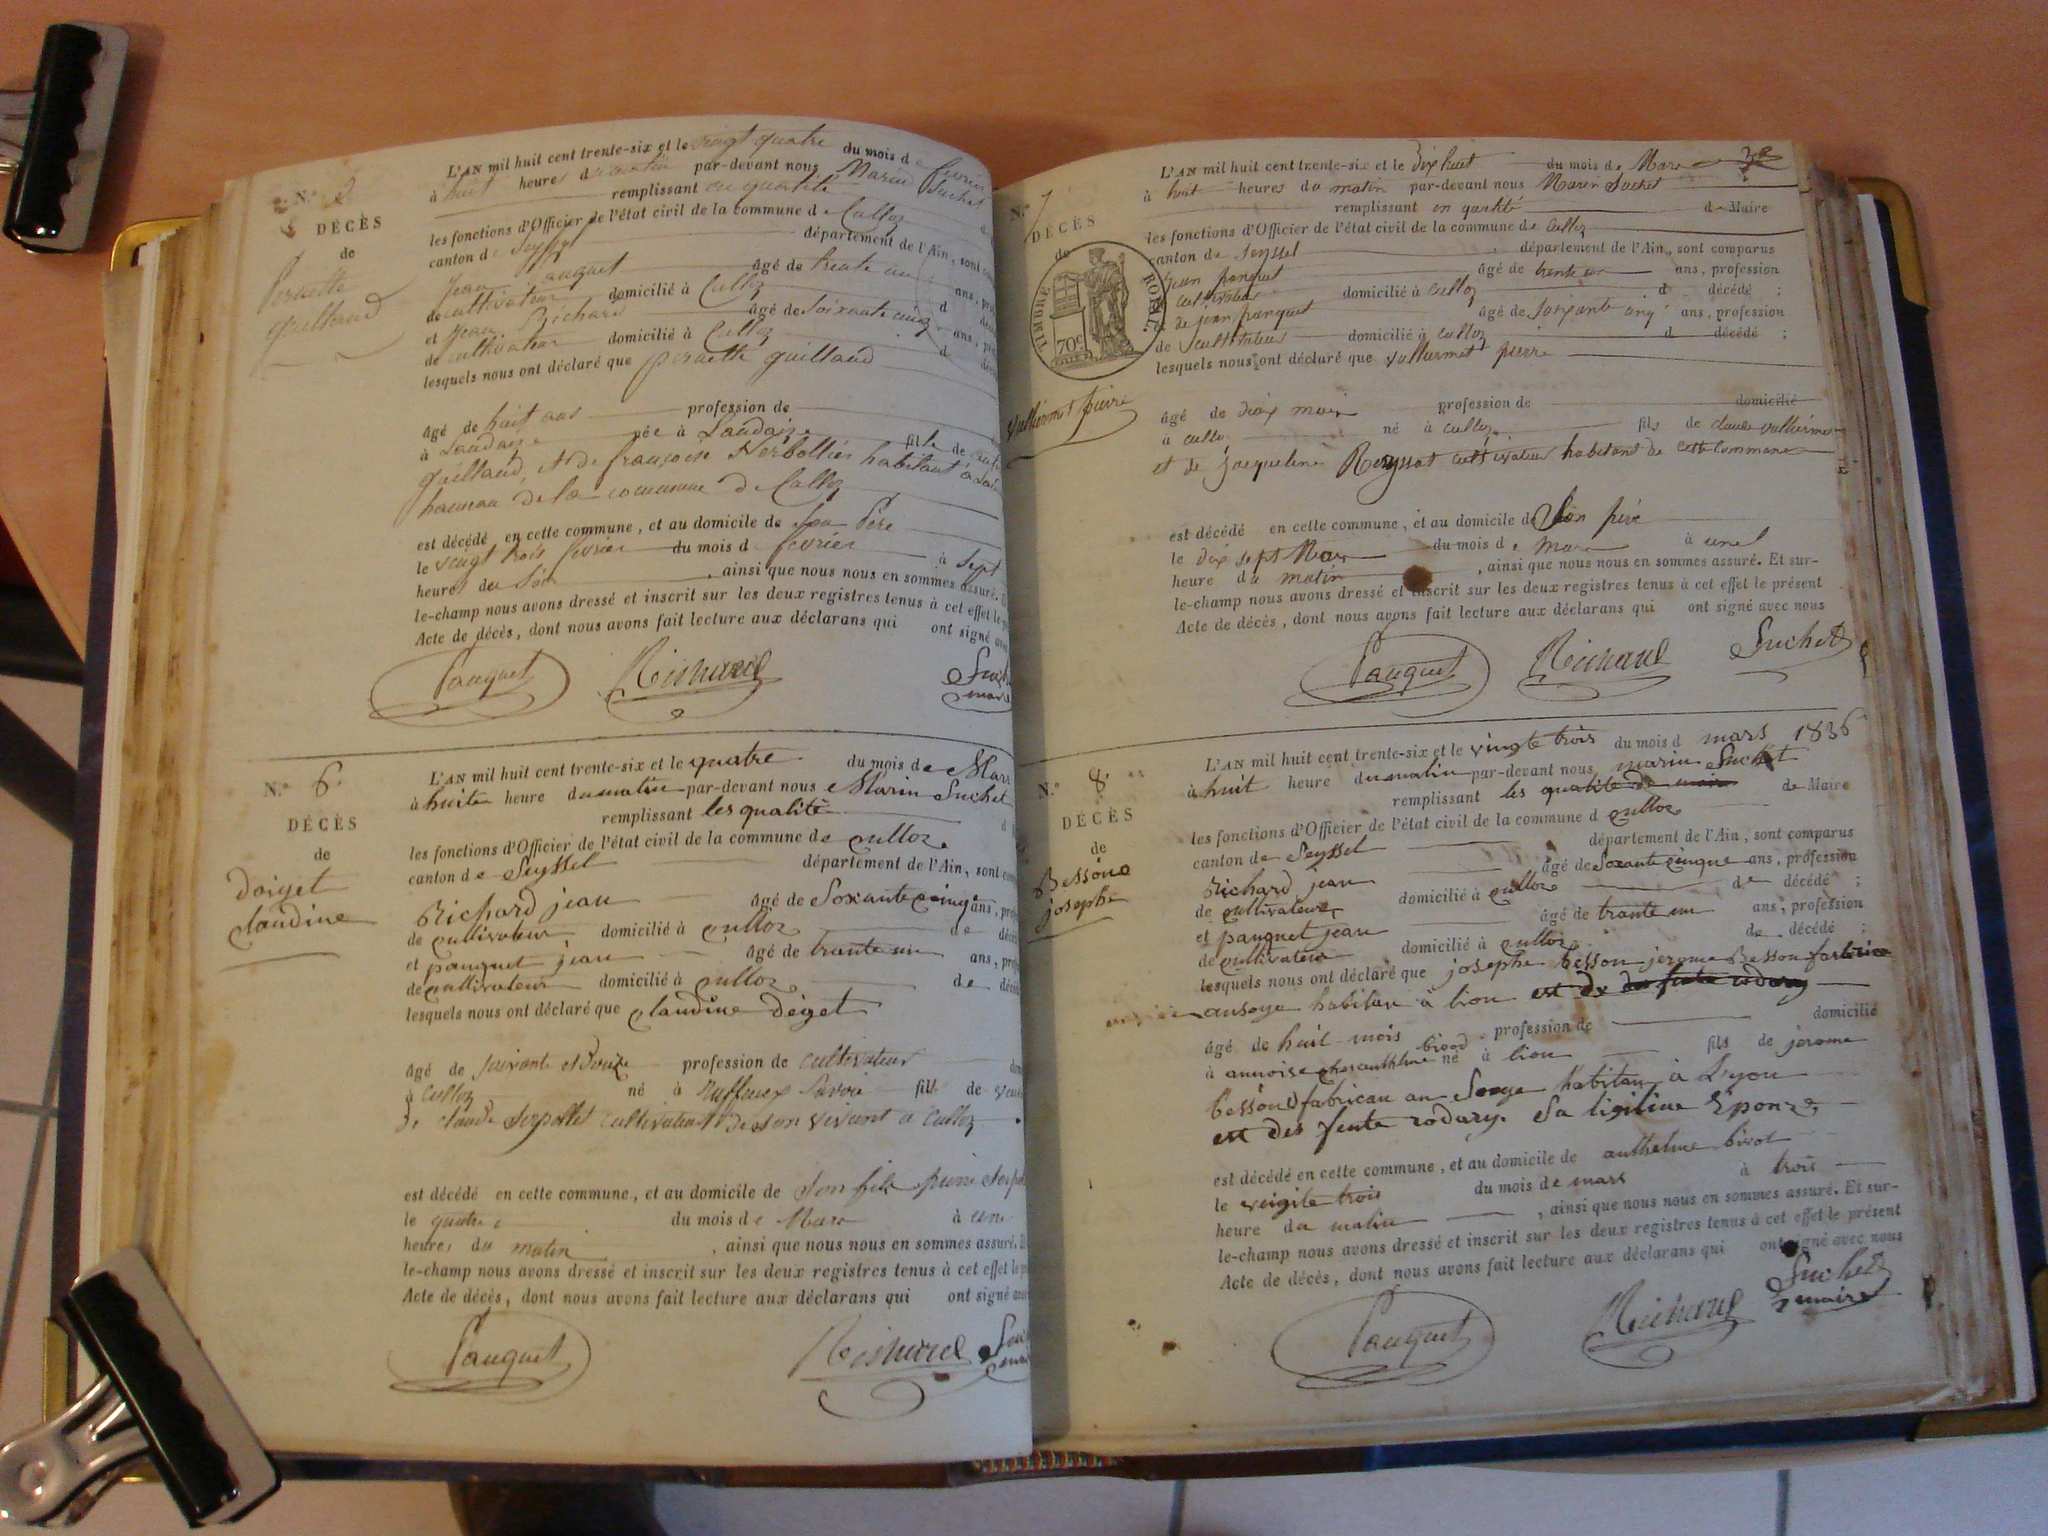 N.°
DÉCÈS
de
Pernette
guillaud
L'AN mil huit cent trente-six et le vingt quatre du mois de fevrier
à huit heures du matin par-devant nous Marin Suchet
remplissant en qualité
les fonctions d'Officier de l'état civil de la commune de Culloz
canton de Seyssel département de l'Ain, sont
Jean pauquet âgé de trente un ans,
de cultivateur domicilié à Culloz d
et Jean Richard âgé de Soixante cinq ans,
de cultivateur domicilié à Culloz d
lesquels nous ont déclaré que pernette guillaud
âgé de huit ans profession de
à Landaize née à Landaize fille de
guillaud, et de françoise Herbollier habitant à
hameau de la commune de Culloz
est décédé en cette commune, et au domicile de Son Père
le vingt trois fevrier du mois de fevrier à Sept
heures du Soir, ainsi que nous nous en sommes assuré.
le-champ nous avons dressé et inscrit sur les deux registres tenus à cet effet le
Acte de décès, dont nous avons fait lecture aux déclarans qui ont signé
Pauquet Richard
N.° 6.
DÉCÈS
de
doiget
claudine
L'AN mil huit cent trente-six et le quatre du mois de Mars
à huite heure du matin par-devant nous Marin Suchet
remplissant les qualité
les fonctions d'Officier de l'état civil de la commune de culloz
canton de Seyssel département de l'Ain, sont
Richard jean âgé de Soxante cinq ans,
de cultivateur domicilié à culloz de
et pauquet jean âgé de trante un ans,
de cultivateur domicilié à culloz de
lesquels nous ont déclaré que claudine déget
âgé de soixante et douze profession de cultivateur
à Culloz né à Ruffieux Savoie fille de
de claude Serpollet cultivateur de son vivant a Culloz
est décédé en cette commune, et au domicile de Son fils pierre
le quatre du mois de Mars à une
heures du matin, ainsi que nous nous en sommes assuré.
le-champ nous avons dressé et inscrit sur les deux registres tenus à cet effet le
Acte de décès, dont nous avons fait lecture aux déclarans qui ont signé
Pauquet Richard
N.° 7
DÉCÈS
de
TIMBRE ROYAL.
70c
Vulliermet pierre
L'AN mil huit cent trente-six et le Dix huit du mois de Mars
à huit heures du matin par-devant nous Marin Suchet
remplissant en qualité de Maire
les fonctions d'Officier de l'état civil de la commune de culloz
canton de Seyssel département de l'Ain, sont comparus
Jean pauquet âgé de trente un ans, profession
cultivateur domicilié à culloz d décédé ;
de jean pauquet âgé de Soixante cinq ans, profession
de cultivateur domicilié à culloz d décédé ;
lesquels nous ont déclaré que vulliermet pierre
âgé de Dix mois profession de domicilié
à culloz né à culloz fils de claude vulliermet
et de jacqueline cultivateur habitant de cette commune
est décédé en cette commune, et au domicile de Son père
le dix sept Mars du mois de mars à une
heure du matin, ainsi que nous nous en sommes assuré. Et sur-
le-champ nous avons dressé et inscrit sur les deux registres tenus à cet effet le présent
Acte de décès, dont nous avons fait lecture aux déclarans qui ont signé avec nous
Pauquet Richard Suchet
N.° 8.
DÉCÈS
de
Bessone
josephe
L'AN mil huit cent trente-six et le vingte trois du mois d mars 1836
à huit heure du matin par-devant nous marin Suchet
remplissant les qualité de maire de Maire
les fonctions d'Officier de l'état civil de la commune d culloz
canton de Seyssel département de l'Ain, sont comparus
Richard jean âgé de Soxante cinque ans, profession
de cultivateur domicilié à culloz de décédé ;
et pauquet jean âgé de trante un ans, profession
de cultivateur domicilié à culloz de décédé ;
lesquels nous ont déclaré que josephe besson jerome Besson
ansoye habitan à lion
âgé de huit mois profession de domicilié
à né à lion fils de jerome
bessone fabrican an Soeye habitan à Lyon
est des fente rodary. Sa
est décédé en cette commune, et au domicile de anthelme birot
le veigite trois du mois de mars à trois
heure du matin, ainsi que nous nous en sommes assuré. Et sur-
le-champ nous avons dressé et inscrit sur les deux registres tenus à cet effet le présent
Acte de décès, dont nous avons fait lecture aux déclarans qui ont signé avec nous
Pauquet Richard Suchet
maire